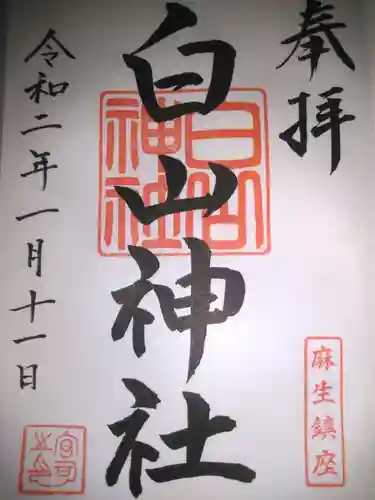 奉拝
白山神社
白山神社
麻生鎮座
令和二年一月十一日
宮司之印